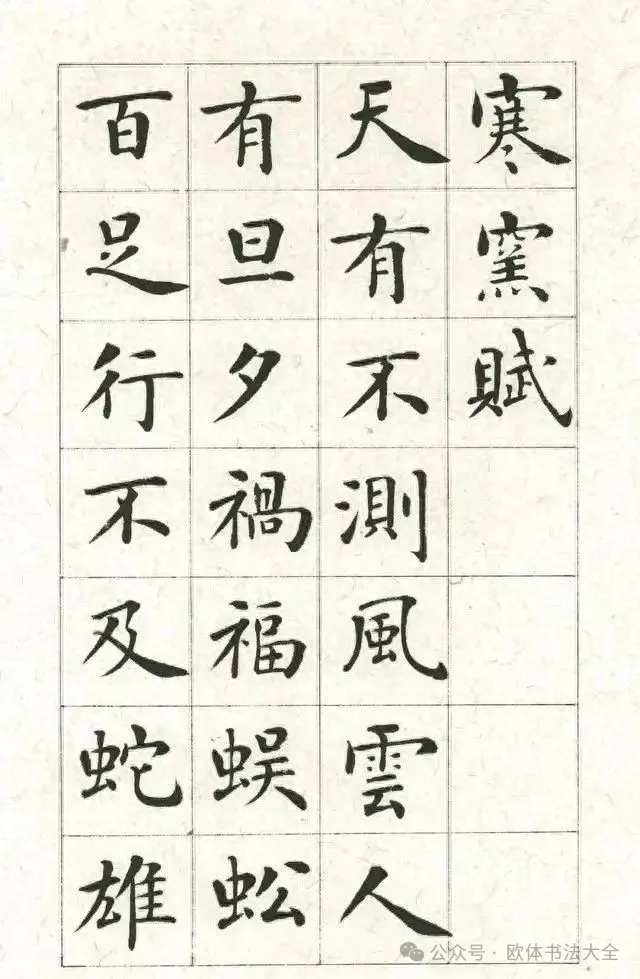 寒窯賦
天有不測風雲人
有旦夕禍福蜈蚣
百足行不及蛇雄
公众号·欧体书法大全